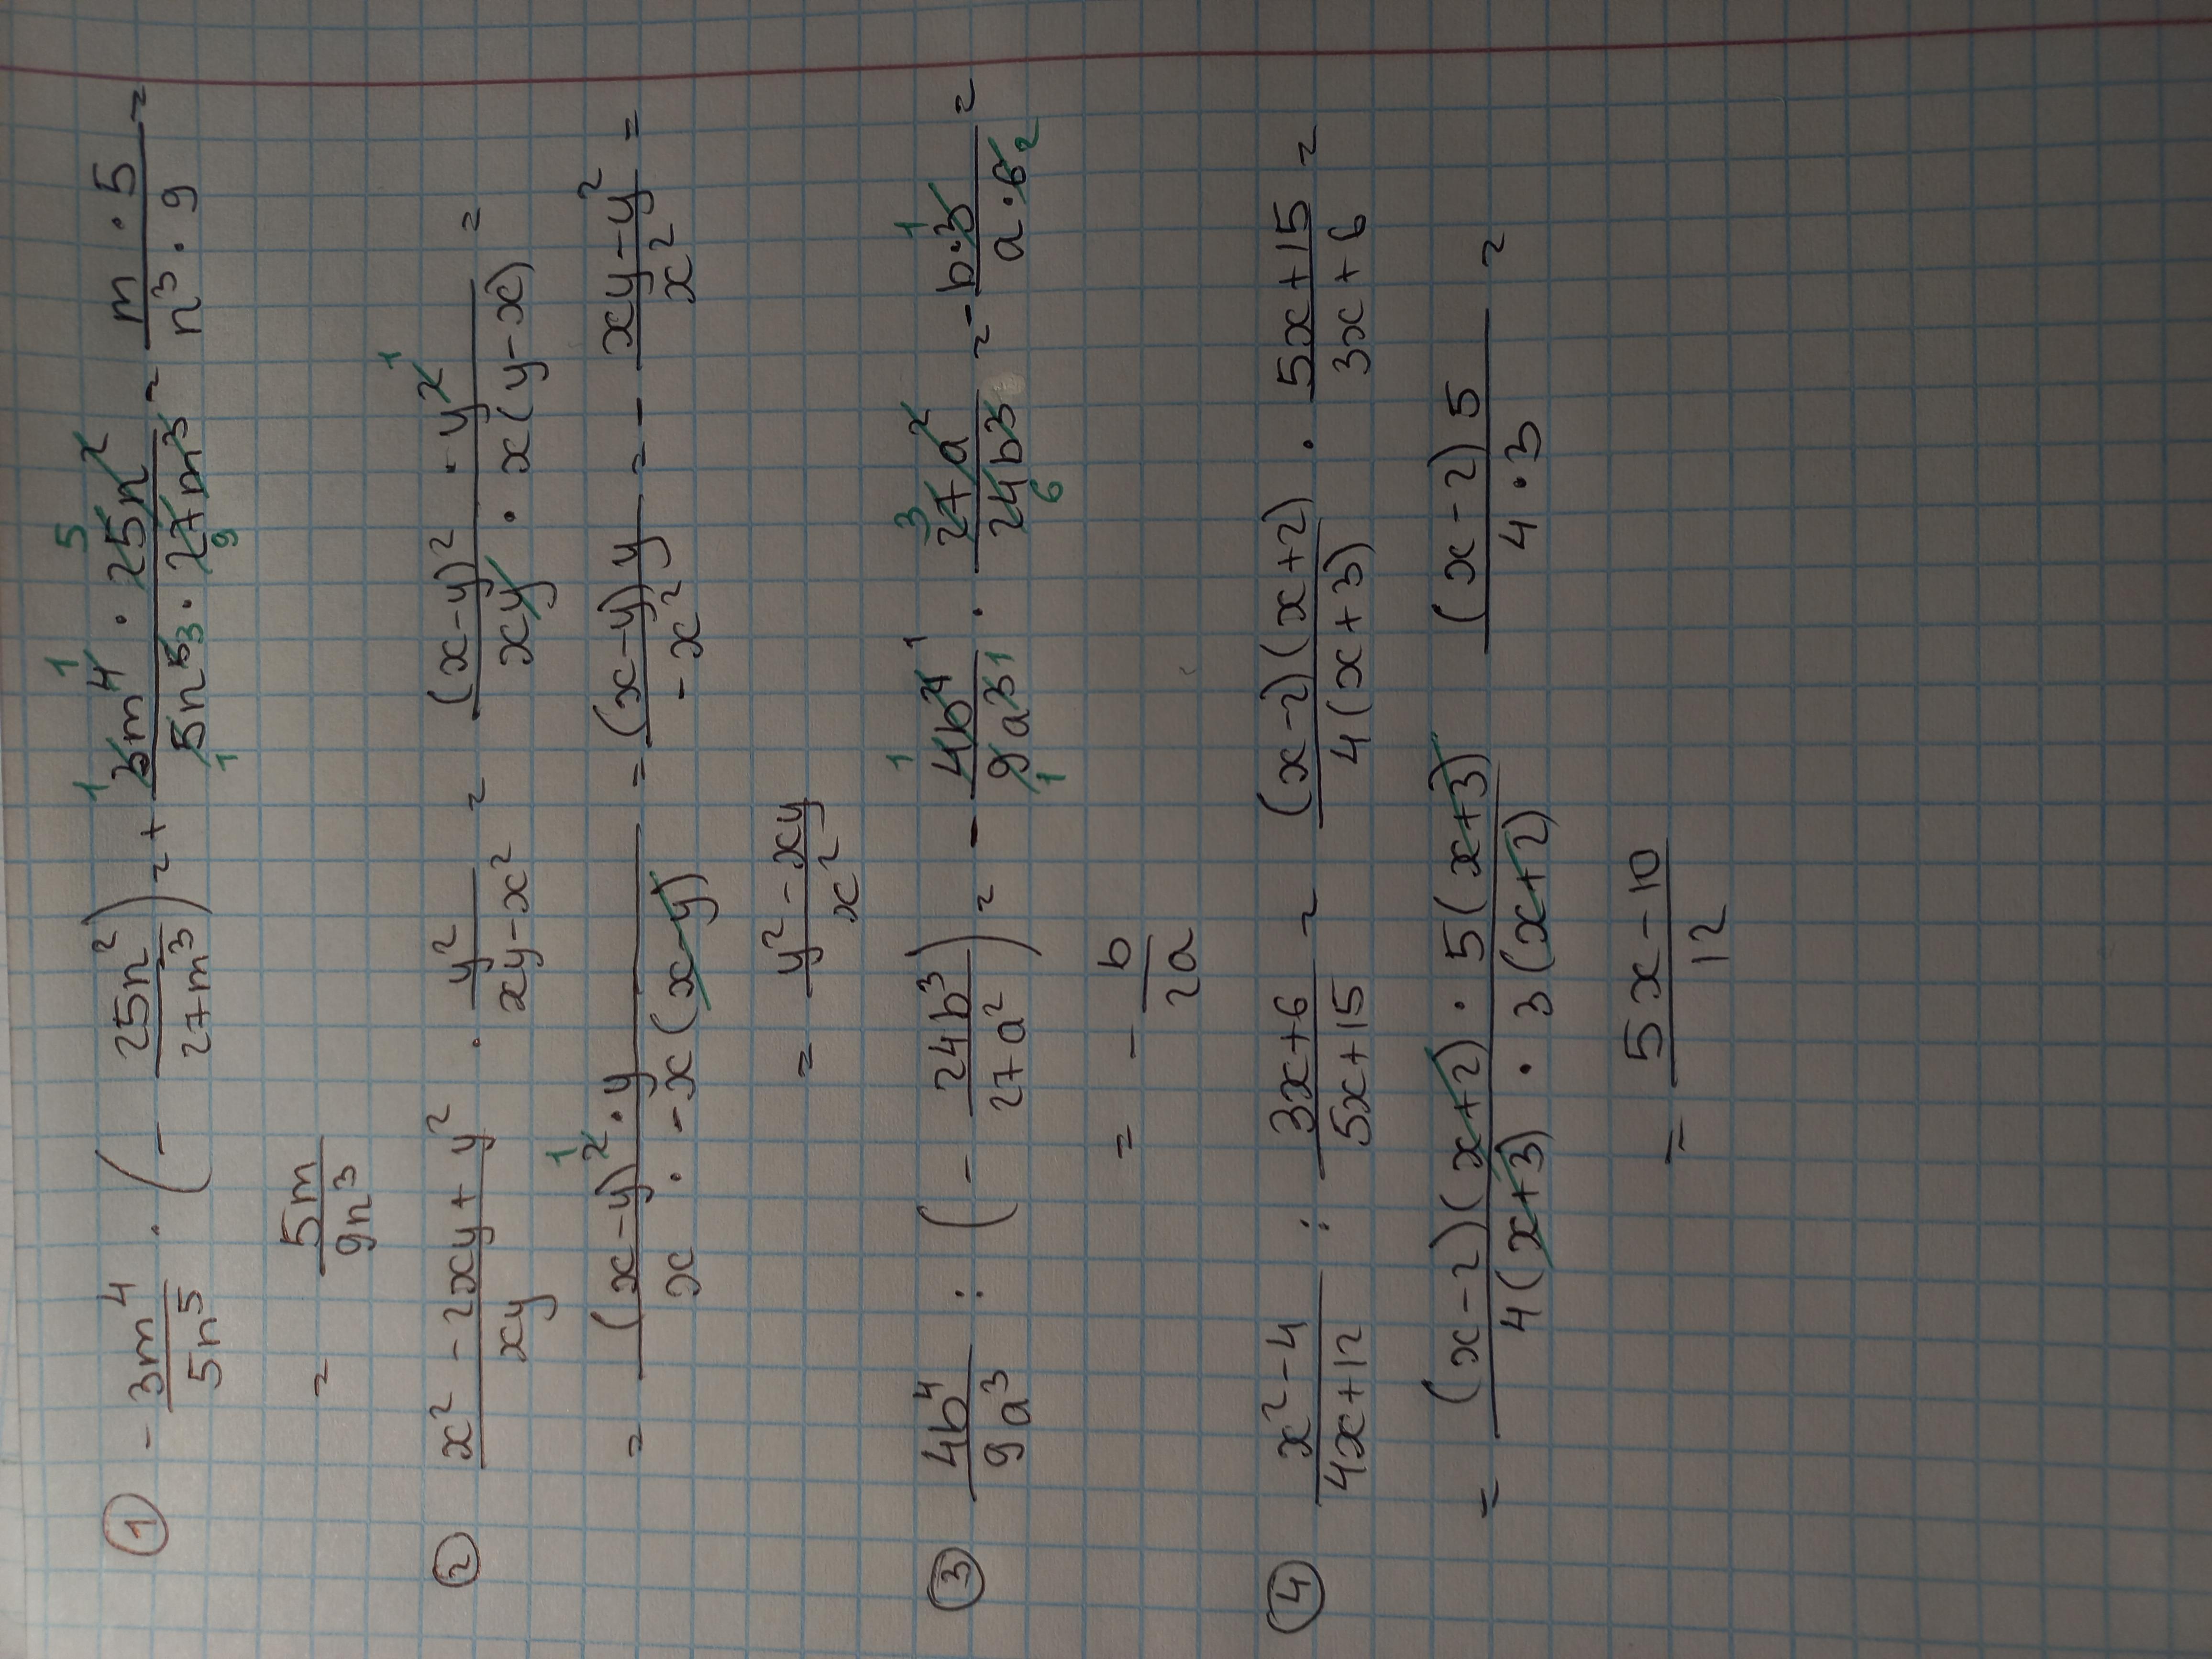 ① - 3m⁴/5n⁵ · (- 25n²/27m³) = + 3m⁴ · 25n²/5n⁵ · 27m³ = m · 5/n³ · 9 =
= 5m/9n³
② x² - 2xy + y²/xy · y²/xy - x² = (x-y)² · y²/xy · x(y-x) =
= (x-y)² · y/x · -x(x-y) = (x-y)y/-x² = - xy-y²/x² =
= y² - xy/x²
③ 4b⁴/9a³ : (- 24b³/27a²) = - 4b⁴/9a³ · 27a²/24b³ = - b·3/a·6 =
= - b/2a
④ x² - 4/4x+12 : 3x+6/5x+15 = (x-2)(x+2)/4(x+3) · 5x+15/3x+6 =
= (x-2)(x+2) · 5(x+3)/4(x+3) · 3(x+2) (x-2)5/4·3 =
= 5x-10/12